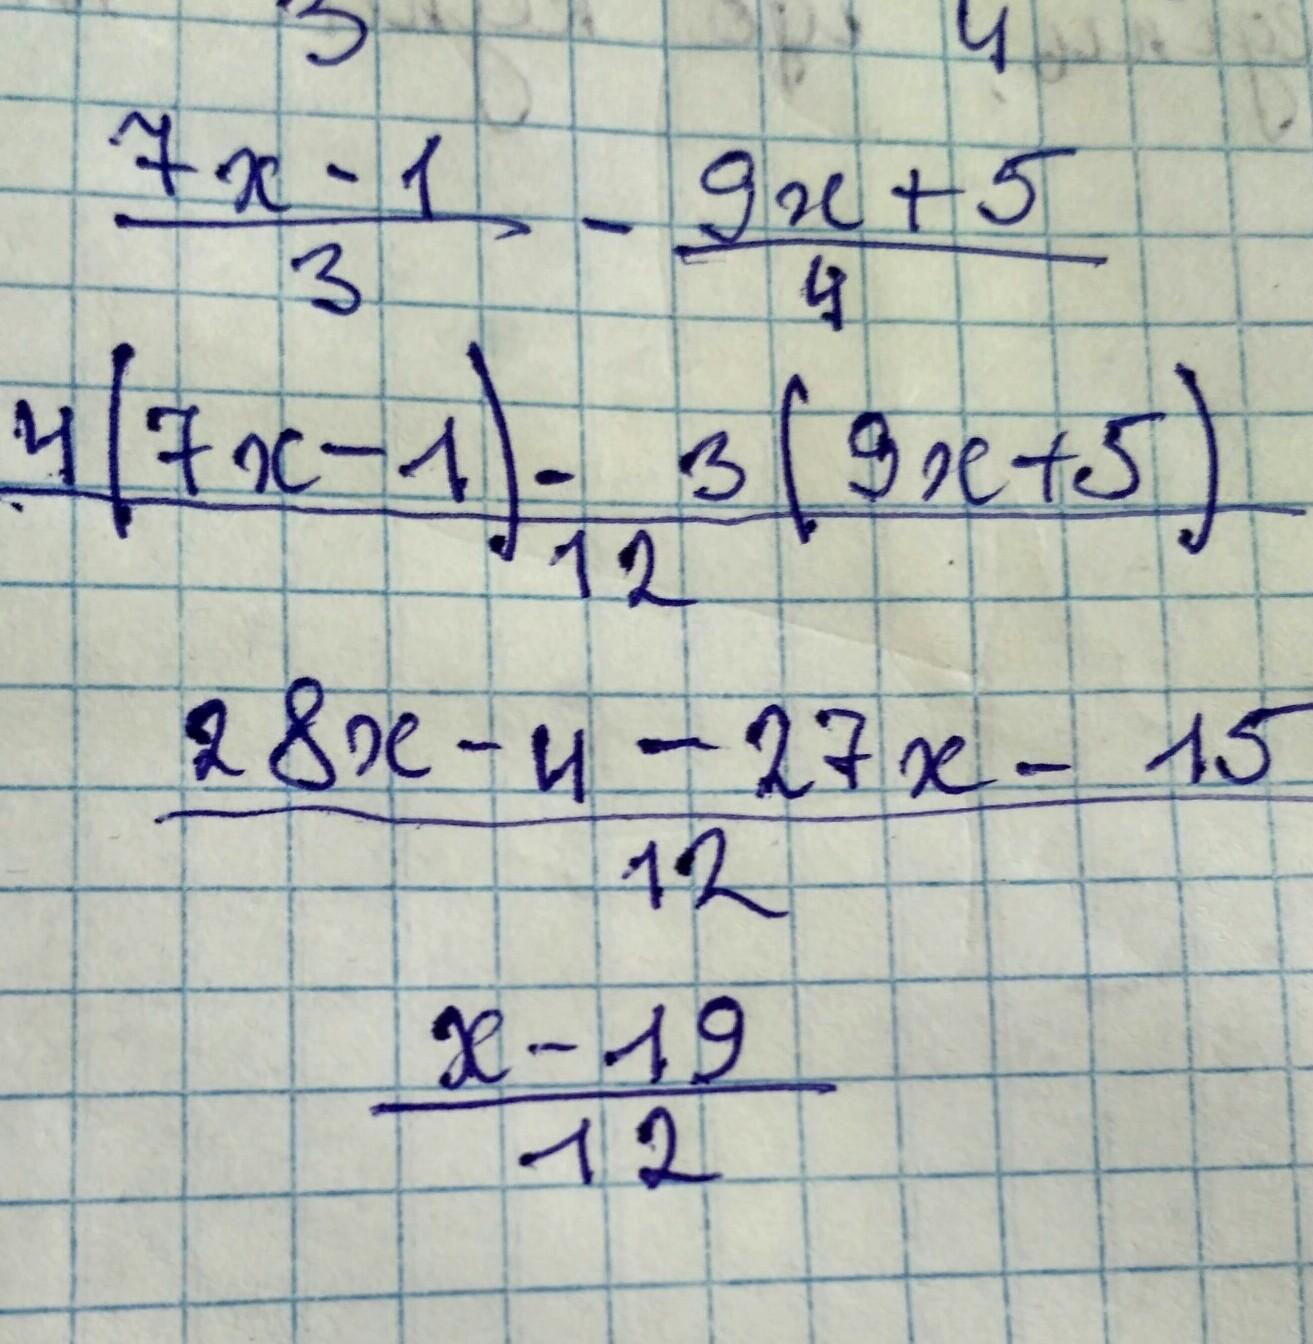 3 4
7x - 1 - 9x + 5
3 4
4(7x - 1) - 3(9x + 5)
12
28x - 4 - 27x - 15
12
x - 19
12